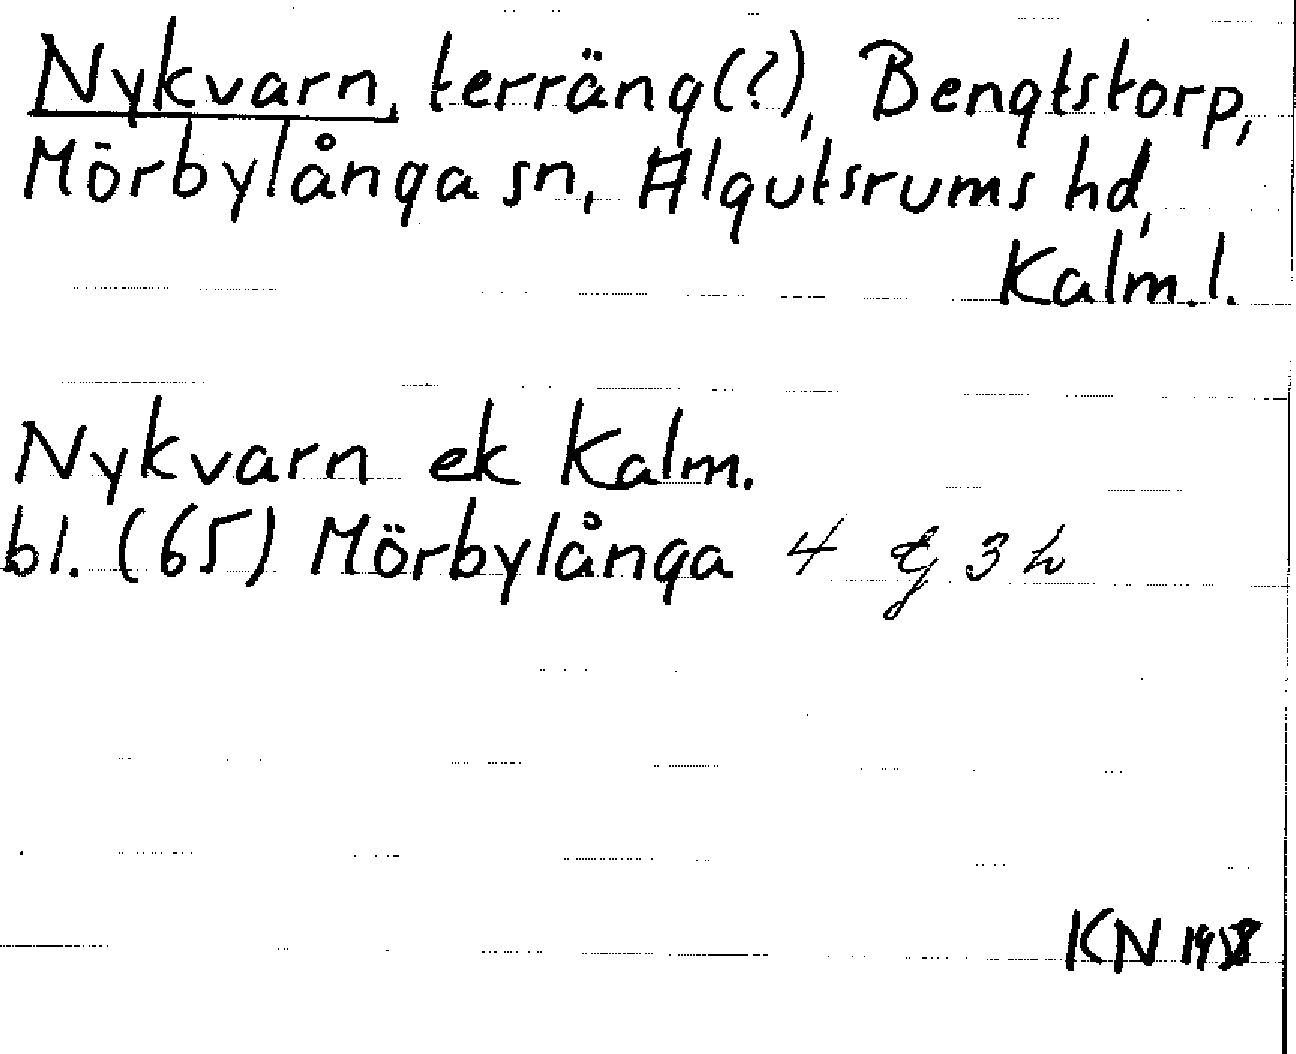 Nykvarn, terräng(?), Bengtstorp,
Mörbylånga sn, Algutsrums hd,
Kalm.l.
Nykvarn ek Kalm.
bl. (65) Mörbylånga 4 g 3 h
KN